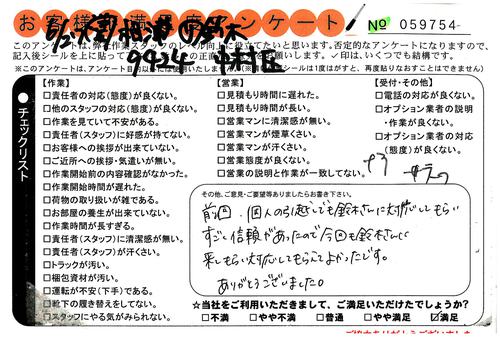 お客様満足度アンケート
No 059754-
このアンケートは、弊社作業スタッフのレベル向上に役立てたいと思います。否定的なアンケートになりますので、
9424
●チェックリスト
【作業】
□責任者の対応(態度)が良くない。
□他のスタッフの対応(態度)が良くない。
□作業を見ていて不安がある。
□責任者(スタッフ)に好感が持てない。
□お客様への挨拶が出来ていない。
□ご近所への挨拶・気遣いが無い。
□作業開始前の内容確認がなかった。
□作業開始時間が遅れた。
□荷物の取り扱いが雑である。
□お部屋の養生が出来ていない。
□作業時間が長すぎる。
□責任者(スタッフ)に清潔感が無い。
□責任者(スタッフ)が汗くさい。
□トラックが汚い。
□梱包資材が汚い。
□運転が不安(下手)である。
□靴下の履き替えをしてない。
□スタッフにやる気がみられない。
【営業】
□見積もり時間に遅れた。
□見積もり時間が長い。
□営業マンに清潔感が無い。
□営業マンが煙草くさい。
□営業マンが汗くさい。
□営業態度が良くない。
□営業の説明と作業が一致してない。
【受付・その他】
□電話の対応が良くない。
□オプション業者の説明
・作業が良くない。
□オプション業者の対応
(態度)が良くない。
その他、ご意見・ご要望等ありましたらお書き下さい。
前回、個人の引越しでも鈴木さんに対応してもらい
すごく信頼があったので今回も鈴木さんに
来てもらい対応してもらえてよかったです。
ありがとうございました。
☆当社をご利用いただきまして、ご満足いただけたでしょうか?
□不満 □やや不満 □普通 □やや満足 ☑満足